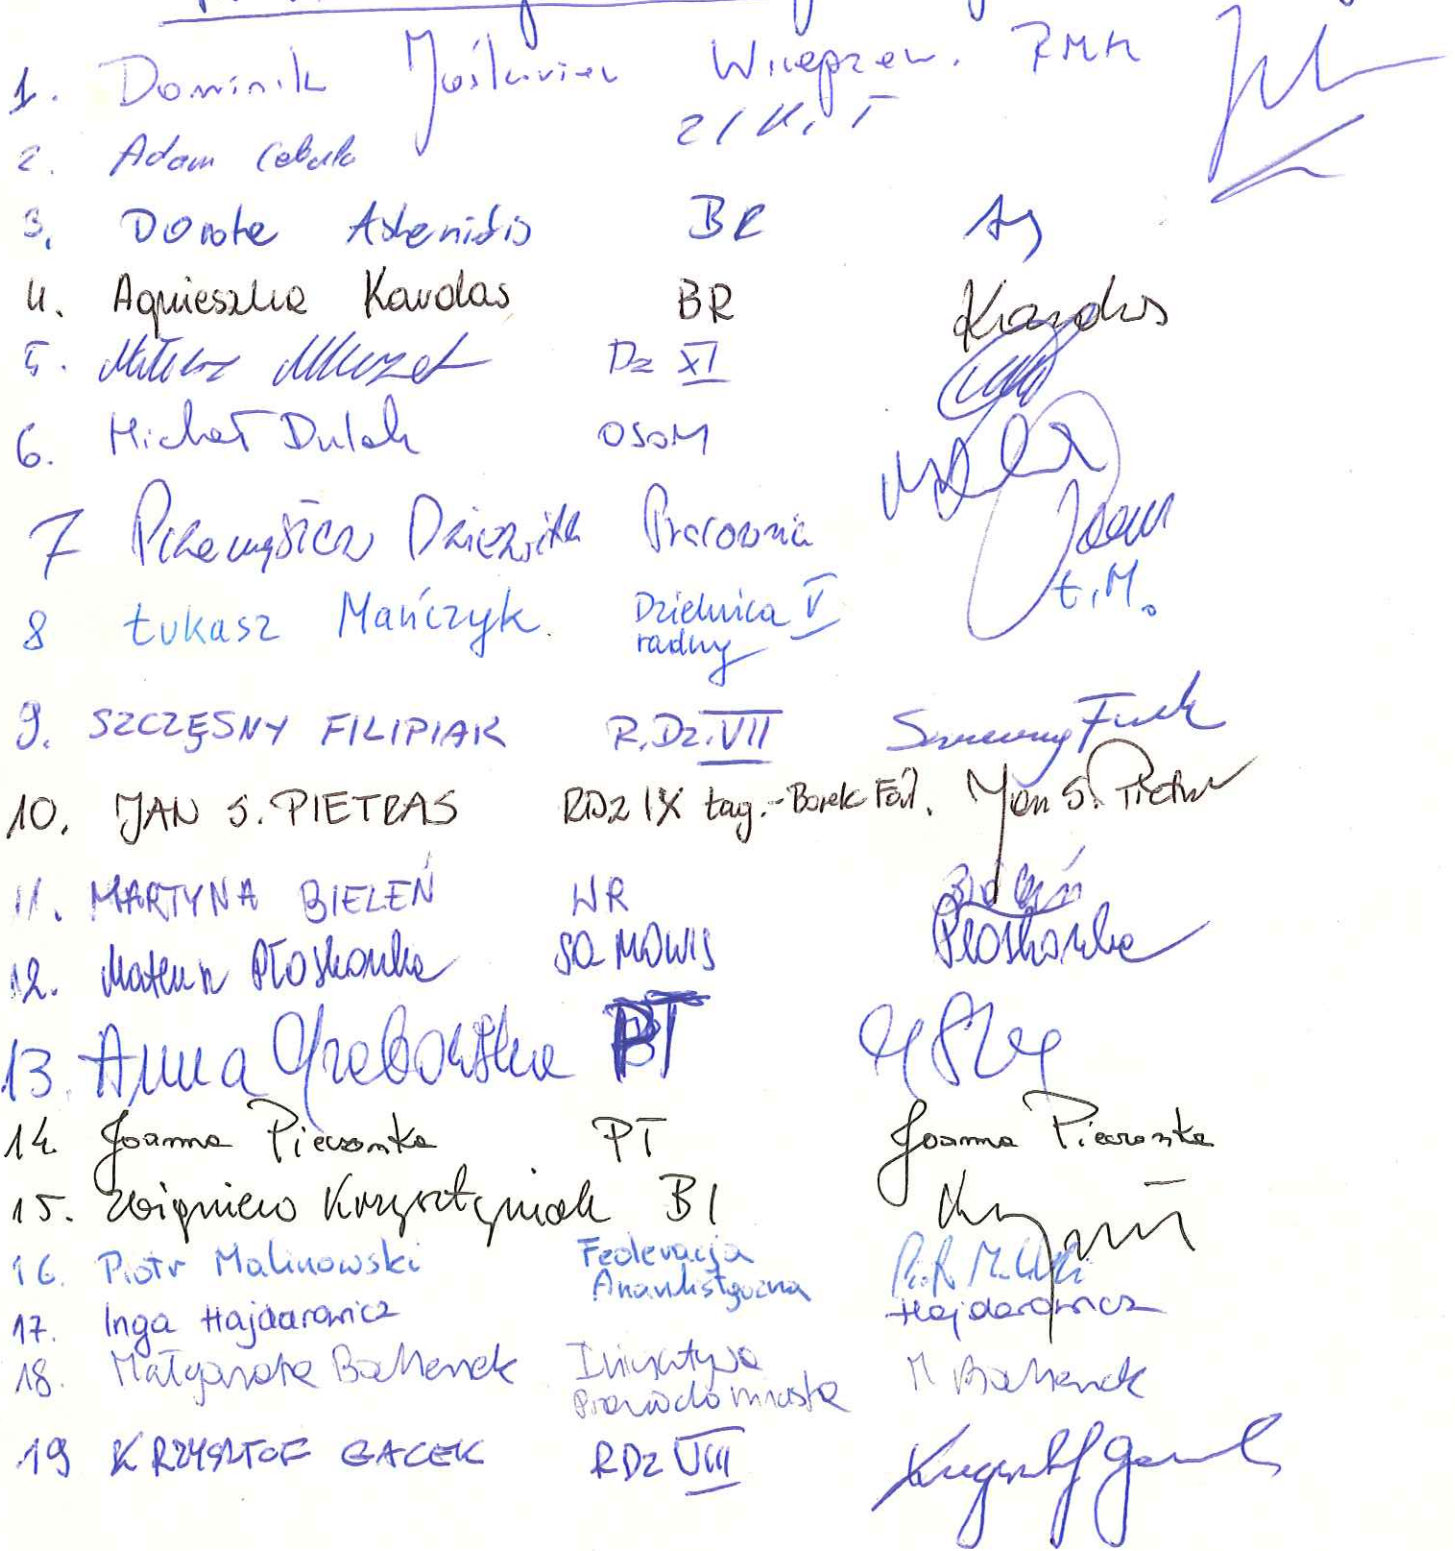 1. Dominik Jaśkowiec Wiceprzew. RMK
2. Adam
3. Dorota Asteridis BR AJ
4. Agnieszka Kardas BR Kardas
5. Dz XI
6. Michał Dulak OSOM
7 Przemysław Dziewitek Pracownia
8 Łukasz Mańczyk. Dzielnica V Ł.M.
radny
9. SZCZĘSNY FILIPIAK R.Dz.VII Szczęsny
10. JAN S. PIETRAS RDz IX Łag.-Borek Fał. Jan S. Pietras
11. MARTYNA BIELEŃ WR Bieleń
12. Mateusz Płoskonka Płoskonka
13. Anna Grabowska PT
14. Joanna Pieczonka PT Joanna Pieczonka
15. Zbigniew Krzysztyniak BI
16. Piotr Malinowski Federacja
Anarchistyczna
17. Inga Hajdarowicz Hajdarowicz
18. Małgorzata Inicjatywa M
Prawo do miasta
19 KRZYSZTOF GACEK RDz VIII Krzysztof Gacek